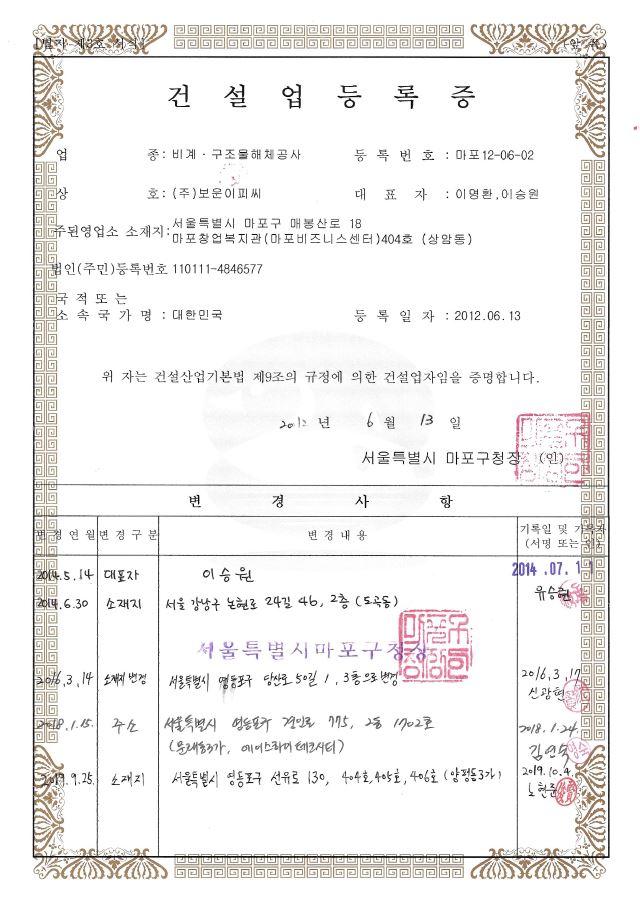 [별지 제3호 서식] (앞 쪽)
건 설 업 등 록 증
업 종: 비계 · 구조물해체공사 등 록 번 호 : 마포12-06-02
상 호: (주)보운이피씨 대 표 자 : 이명환,이승원
주된영업소 소재지: 서울특별시 마포구 매봉산로 18
마포창업복지관(마포비즈니스센터)404호 (상암동)
법인(주민)등록번호 110111-4846577
국 적 또 는
소 속 국 가 명 : 대한민국 등 록 일 자 : 2012.06.13
위 자는 건설산업기본법 제9조의 규정에 의한 건설업자임을 증명합니다.
2012 년 6 월 13 일
서울특별시 마포구청장 (인)
변 경 사 항
변 경 연 월 변 경 구 분 변 경 내 용 기록일 및 기록자
(서명 또는 인)
2014.5.14 대표자 이승원 2014.07.11
유승현
2014.6.30 소재지 서울 강남구 논현로 24길 46, 2층 (도곡동)
서울특별시마포구청장
2016.3.14 소재지 변경 서울특별시 영등포구 당산로 50길 1, 3층으로 변경 2016.3.17
신광현
2018.1.15. 주소 서울특별시 영등포구 경인로 775, 2동 1702호 2018.1.24
(문래동3가, 에이스하이테크시티) 김연숙
2019.9.25. 소재지 서울특별시 영등포구 선유로 130, 404호,405호,406호 (양평동3가) 2019.10.4.
노현준